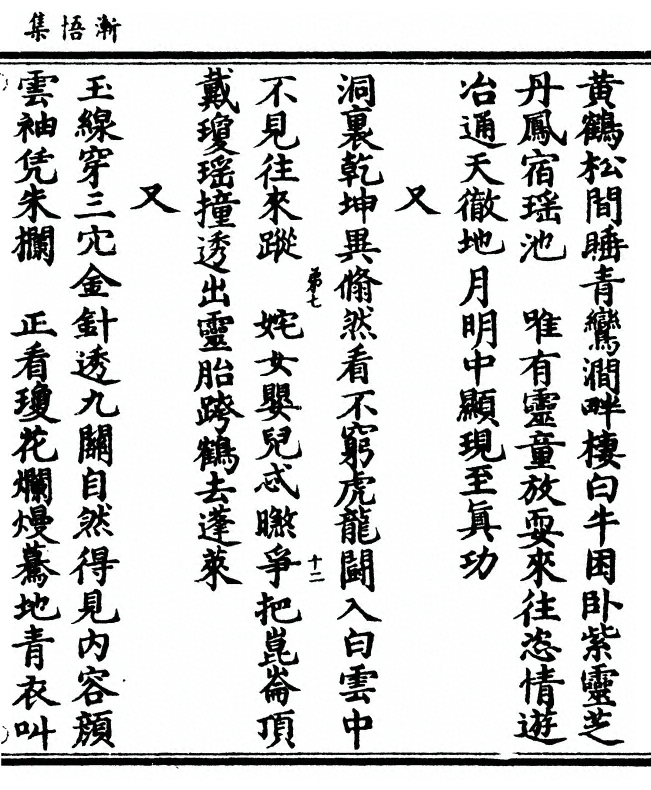 漸悟集
黃鶴松間睡青鸞澗畔棲白牛困卧紫靈芝
丹鳳宿瑶池　唯有靈童放耍來往恣情遊
冶通天徹地月明中顯現至真功
又
洞裏乾坤異翛然看不窮虎龍鬪入白雲中
不見往來蹤　姹女嬰兒忒㬠爭把崑崙頂
弟七
十二
戴瓊瑶撞透出靈胎跨鶴去蓬萊
又
玉線穿三宂金針透九關自然得見内容顔
雲袖凭朱欄　正看瓊花爛熳驀地青衣叫